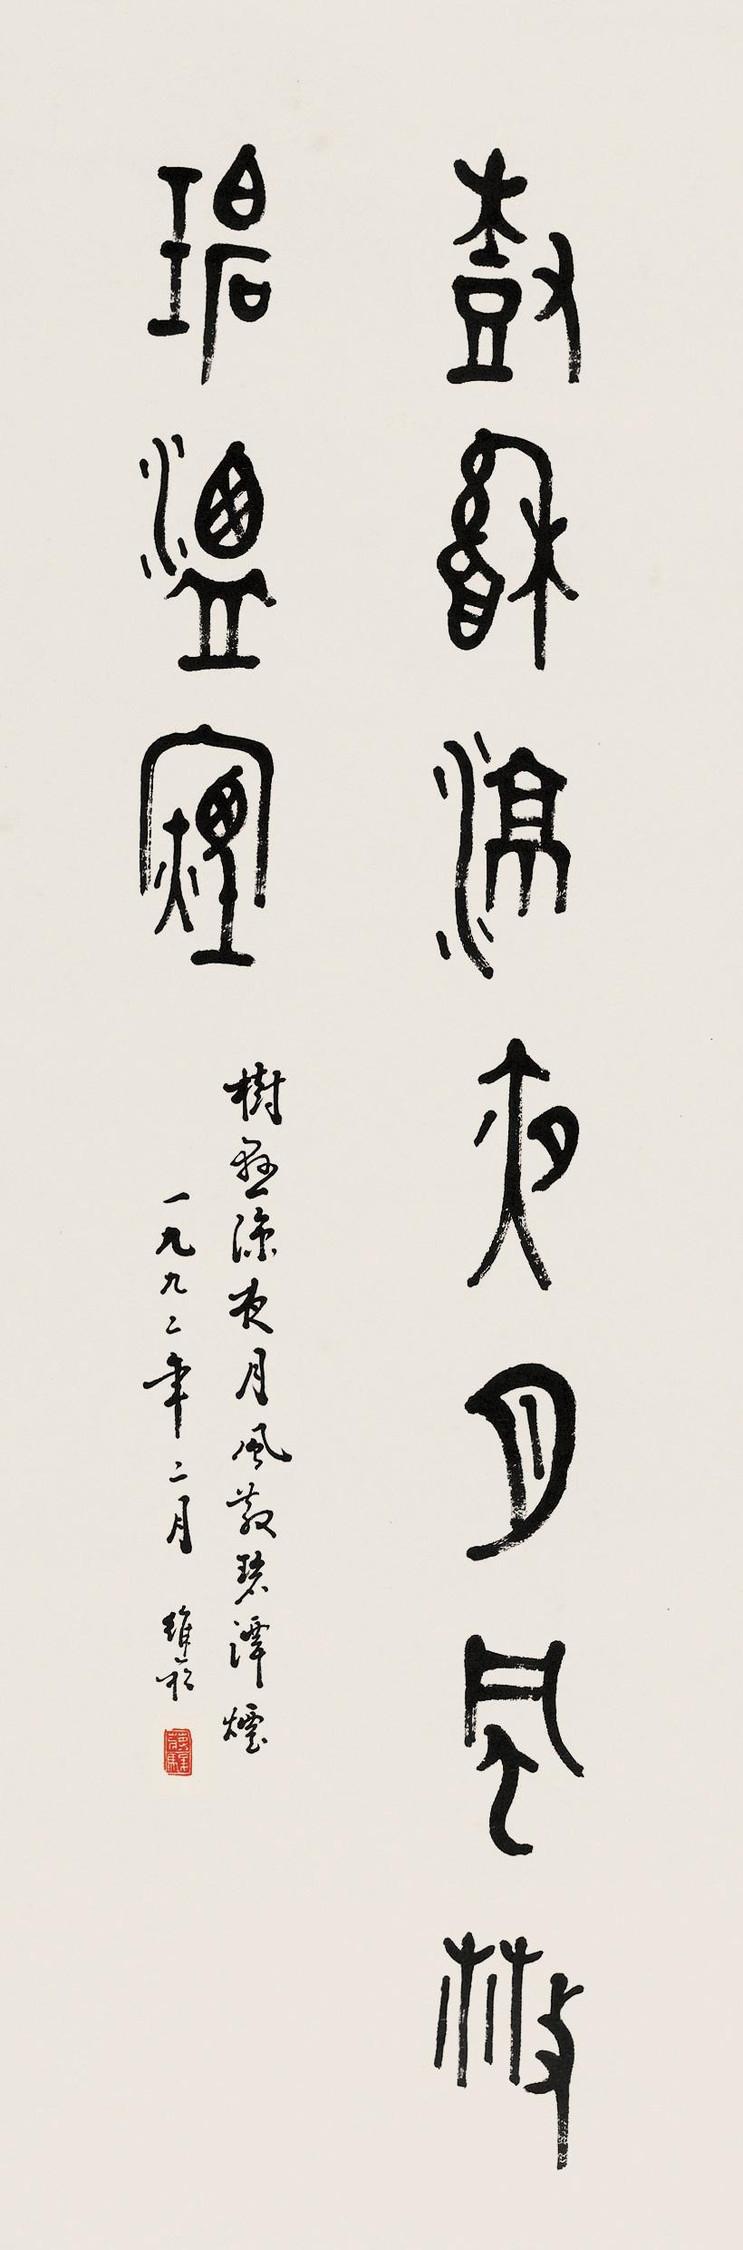 樹懸涼夜月風散
碧潭煙
樹懸涼夜月風散碧潭煙
一九九二年二月 維崧